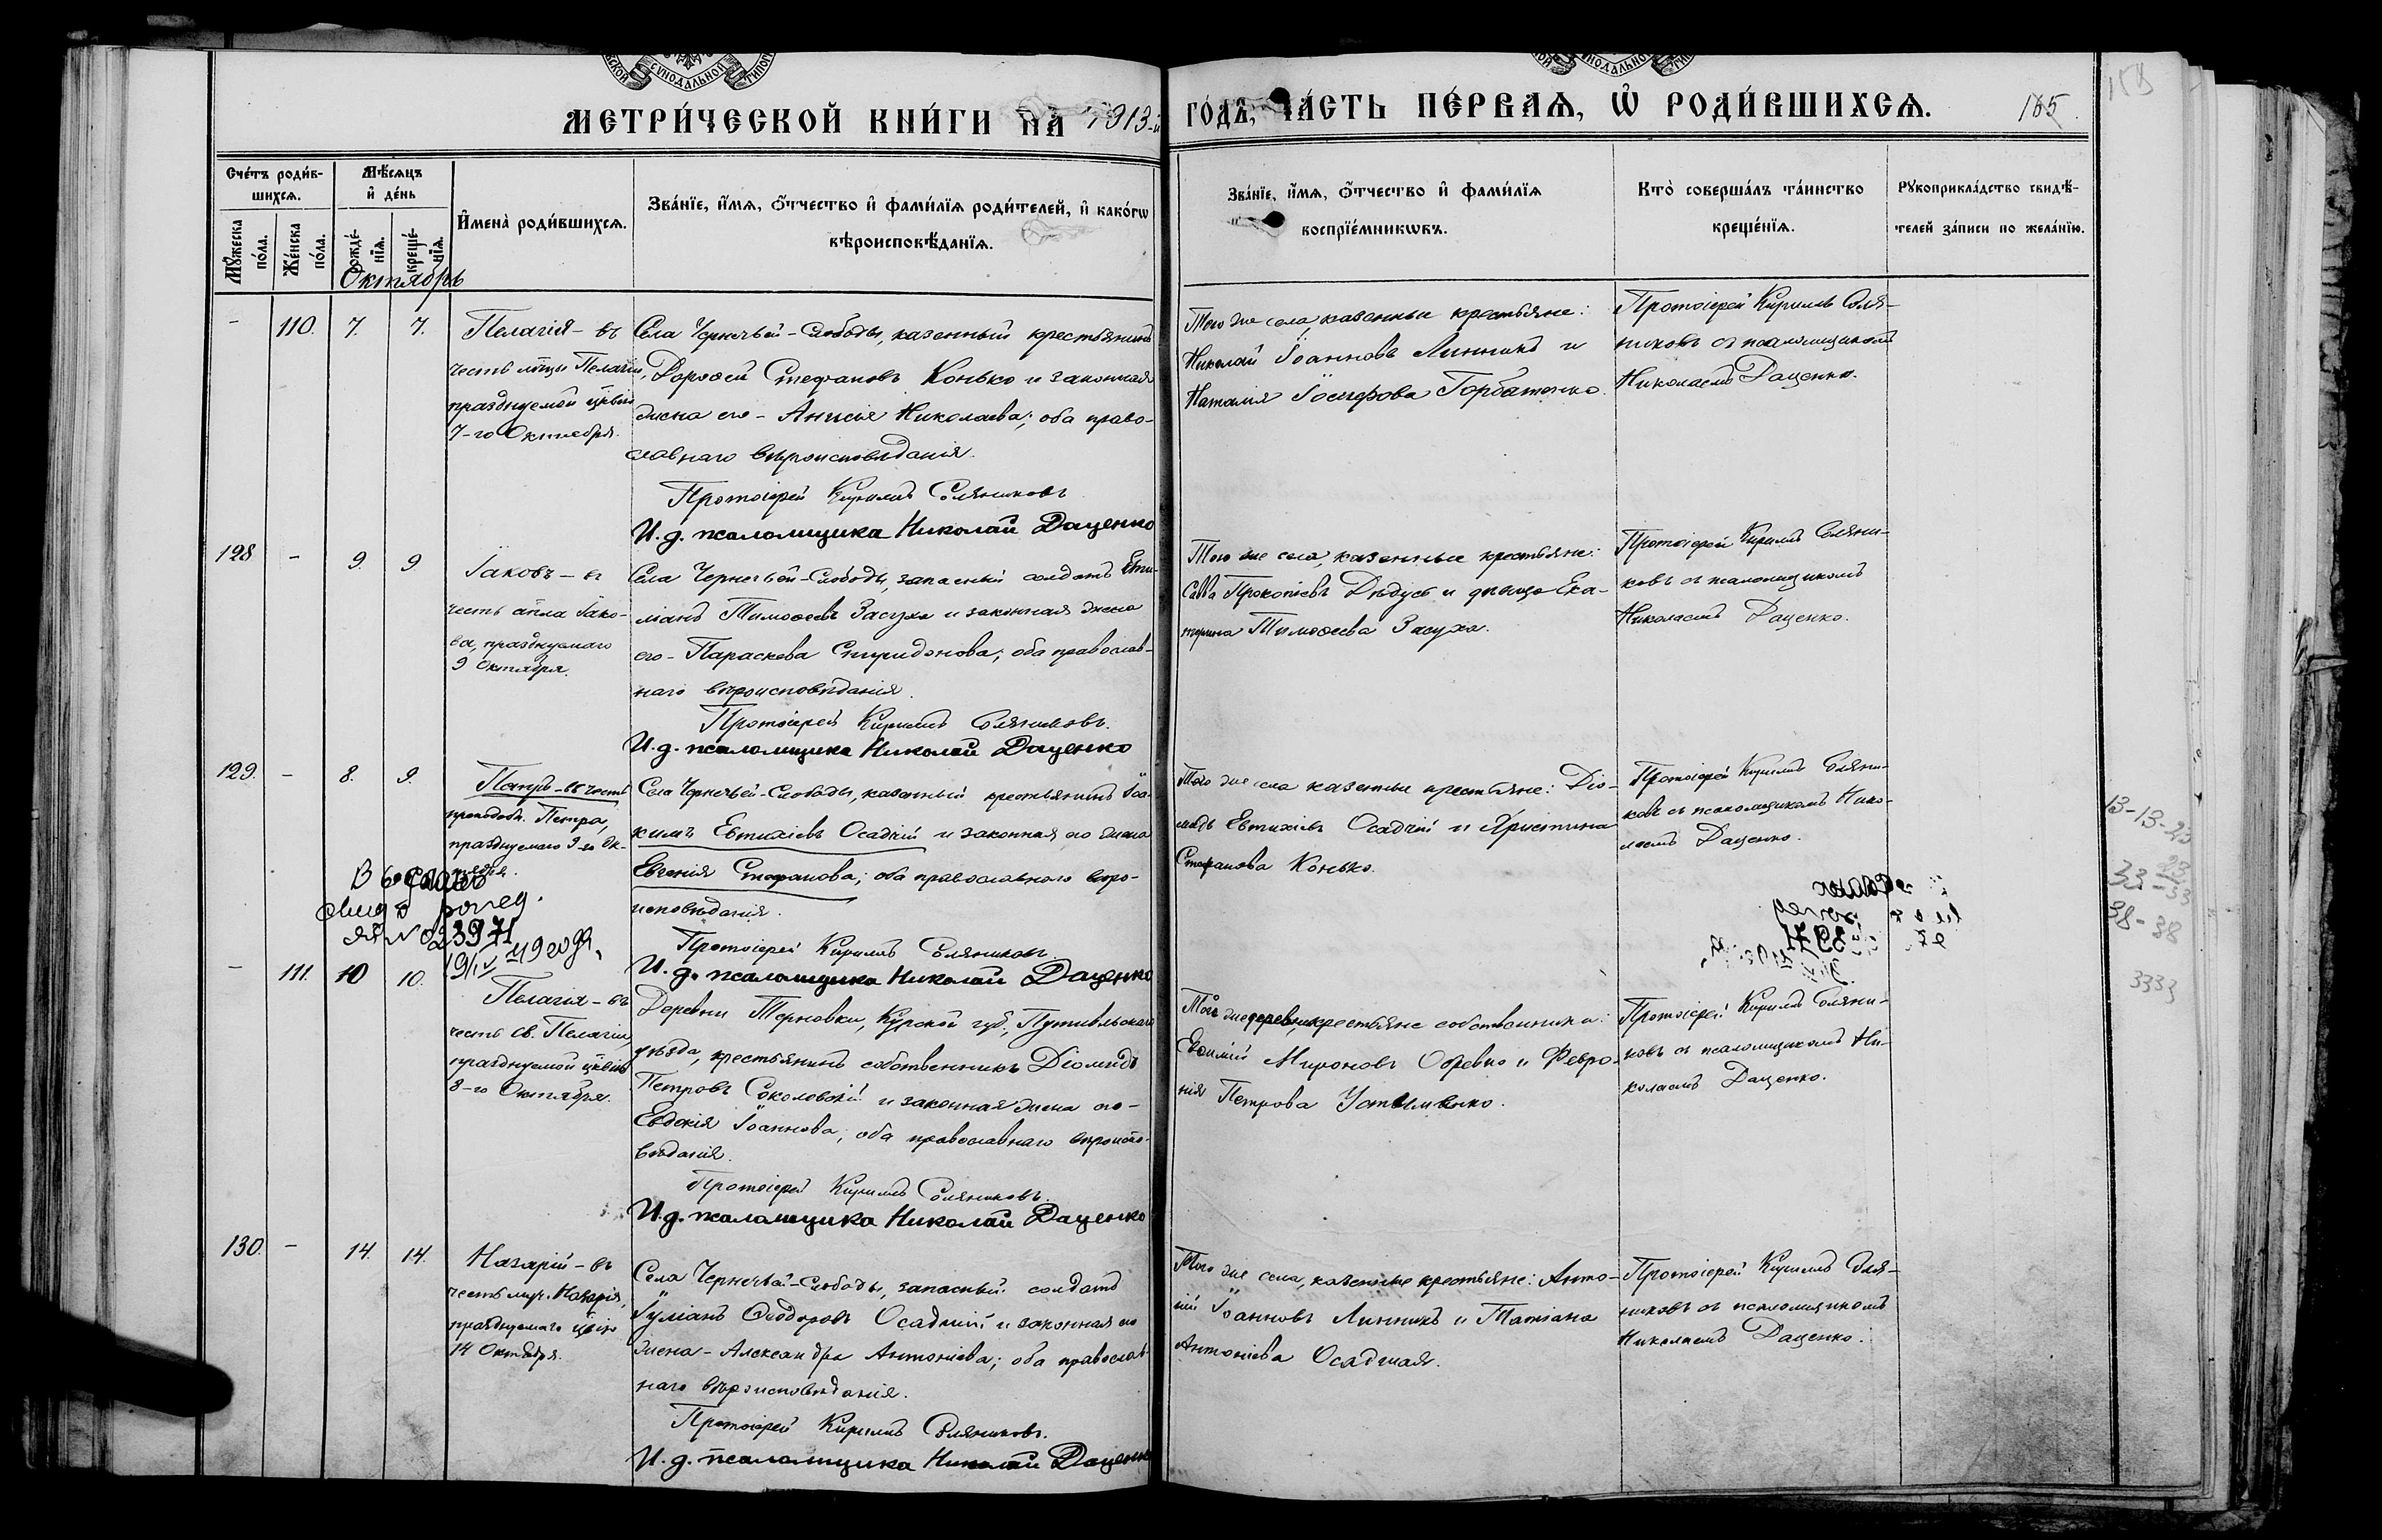 СУНОДАЛЬНОЙ
МЕТРИ́ЧЕСКОЙ КНИ́ГИ НА 1913-й
ГО́ДЪ, ЧА́СТЬ ПЕ́РВАѦ, Ѡ РОДИ́ВШИХСѦ.
165
Сче́тъ роди́в-
шихсѧ.
Мꙋ́жеска
по́ла.
Же́нска
по́ла.
Мѣ́сѧцъ
и де́нь
рожде́-
нїѧ.
креще́-
нїѧ.
Имена̀ роди́вшихсѧ.
Зва́нїе, и́мѧ, о́тчество и фами́лїѧ роди́телей, и како́гѡ
вѣроисповѣ́данїѧ.
Зва́нїе, и́мѧ, о́тчество и фами́лїѧ
воспрїе́мникѡвъ.
Кто̀ соверша́лъ та́инство
креще́нїѧ.
Рꙋкоприкла́дство свидѣ́-
телей за́писи по жела́нїю.
Октябрь
- 110. 7. 7.
Пелагія - въ
честь мцы Пелагіи,
празднуемой црквію
7-го Октября.
Села Чернечьей-Слободы, казенный крестьянинъ
Дороѳей Стефановъ Конько и законная
жена его - Анисія Николаева; оба право-
славнаго вѣроисповѣданія.
Протоіерей Кириллъ Соляниковъ
И. д. псаломщика Николай Даценко
Того же села, казенные крестьяне:
Николай Іоанновъ Линникъ и
Наталія Іосифова Горбатенко.
Протоіерей Кириллъ Соля-
никовъ съ псаломщикомъ
Николаемъ Даценко.
128 - 9. 9.
Іаковъ - въ
честь апла Іако-
ва, празднуемаго
9 Октября.
Села Чернечьей-Слободы, запасный солдатъ Еми-
ліанъ Тимоѳеевъ Засуха и законная жена
его - Параскева Спиридонова; оба православ-
наго вѣроисповѣданія.
Протоіерей Кириллъ Соляниковъ.
И. д. псаломщика Николай Даценко
Того же села, казенные крестьяне:
Савва Прокопіевъ Дѣдусь и дѣвица Ека-
терина Тимоѳеева Засуха.
Протоіерей Кириллъ Соляни-
ковъ съ псаломщикомъ
Николаемъ Даценко.
129. - 8. 9.
Петръ - въ честь
преподобн. Петра,
празднуемаго 9-го Ок-
тября.
Села Чернечьей-Слободы, казенный крестьянинъ Іоа-
кимъ Евтихіевъ Осадчій и законная его жена
Евгенія Стефанова; оба православнаго вѣро-
исповѣданія.
Протоіерей Кириллъ Соляниковъ.
И. д. псаломщика Николай Даценко
Того же села казенные крестьяне: Діо-
мидъ Евтихіевъ Осадчій и Христина
Стефанова Конько.
Протоіерей Кириллъ Соляни-
ковъ съ псаломщикомъ Нико-
лаемъ Даценко.
№ 23971
- 111. 10 10.
Пелагія - въ
честь св. Пелагіи,
празднуемой црквію
8-го Октября.
Деревни Терновки, Курской губ., Путивльскаго
уѣзда, крестьянинъ собственникъ Діомидъ
Петровъ Соколовскій и законная жена его -
Евдокія Іоаннова; оба православнаго вѣроиспо-
вѣданія.
Протоіерей Кириллъ Соляниковъ.
И. д. псаломщика Николай Даценко
Той же деревни, крестьяне собственники:
Евѳимій Мироновъ и Февро-
нія Петрова Устименко.
Протоіерей Кириллъ Соляни-
ковъ съ псаломщикомъ Ни-
колаемъ Даценко.
130. - 14. 14.
Назарій - въ
честь муч. Назарія,
празднуемаго црквію
14 Октября.
Села Чернечьей-Слободы, запасный солдатъ
Іуліанъ Ѳеодоровъ Осадчій и законная его
жена - Александра Антоніева; оба православ-
наго вѣроисповѣданія.
Протоіерей Кириллъ Соляниковъ.
И. д. псаломщика Николай Даценко
Того же села, казенные крестьяне: Анто-
ній Іоанновъ Линникъ и Татіана
Антоніева Осадчая.
Протоіерей Кириллъ Соля-
никовъ съ псаломщикомъ
Николаемъ Даценко.
13-13-23
33-33
38-38
3333